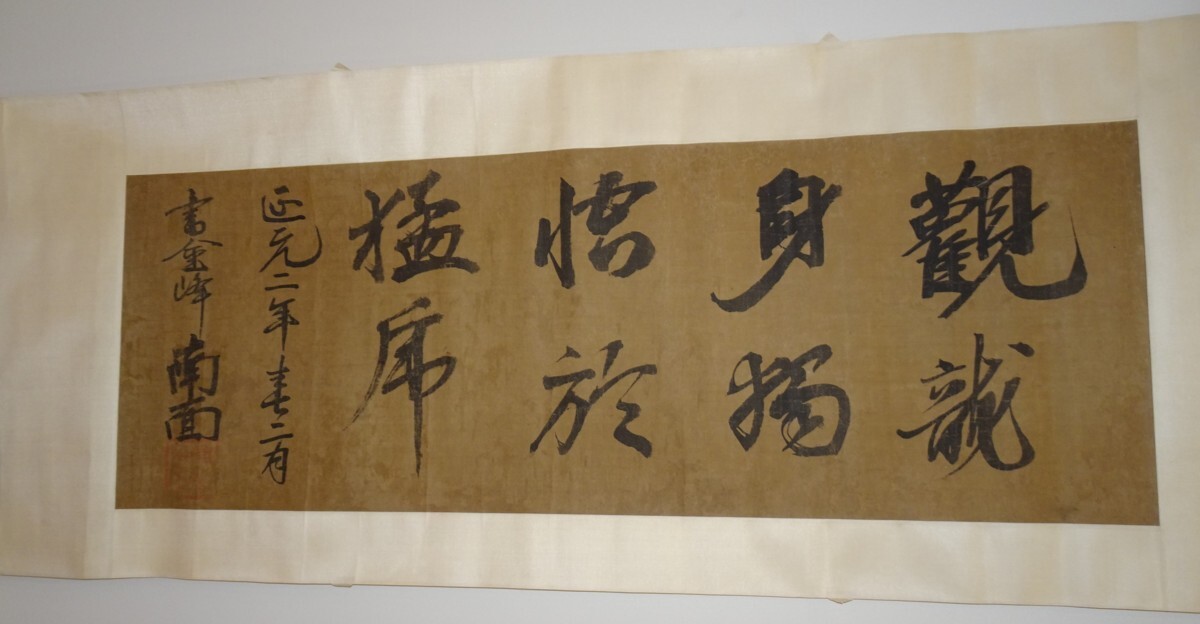 觀龍
身獨
於
猛虎
延元二年春二月
書金峰南面